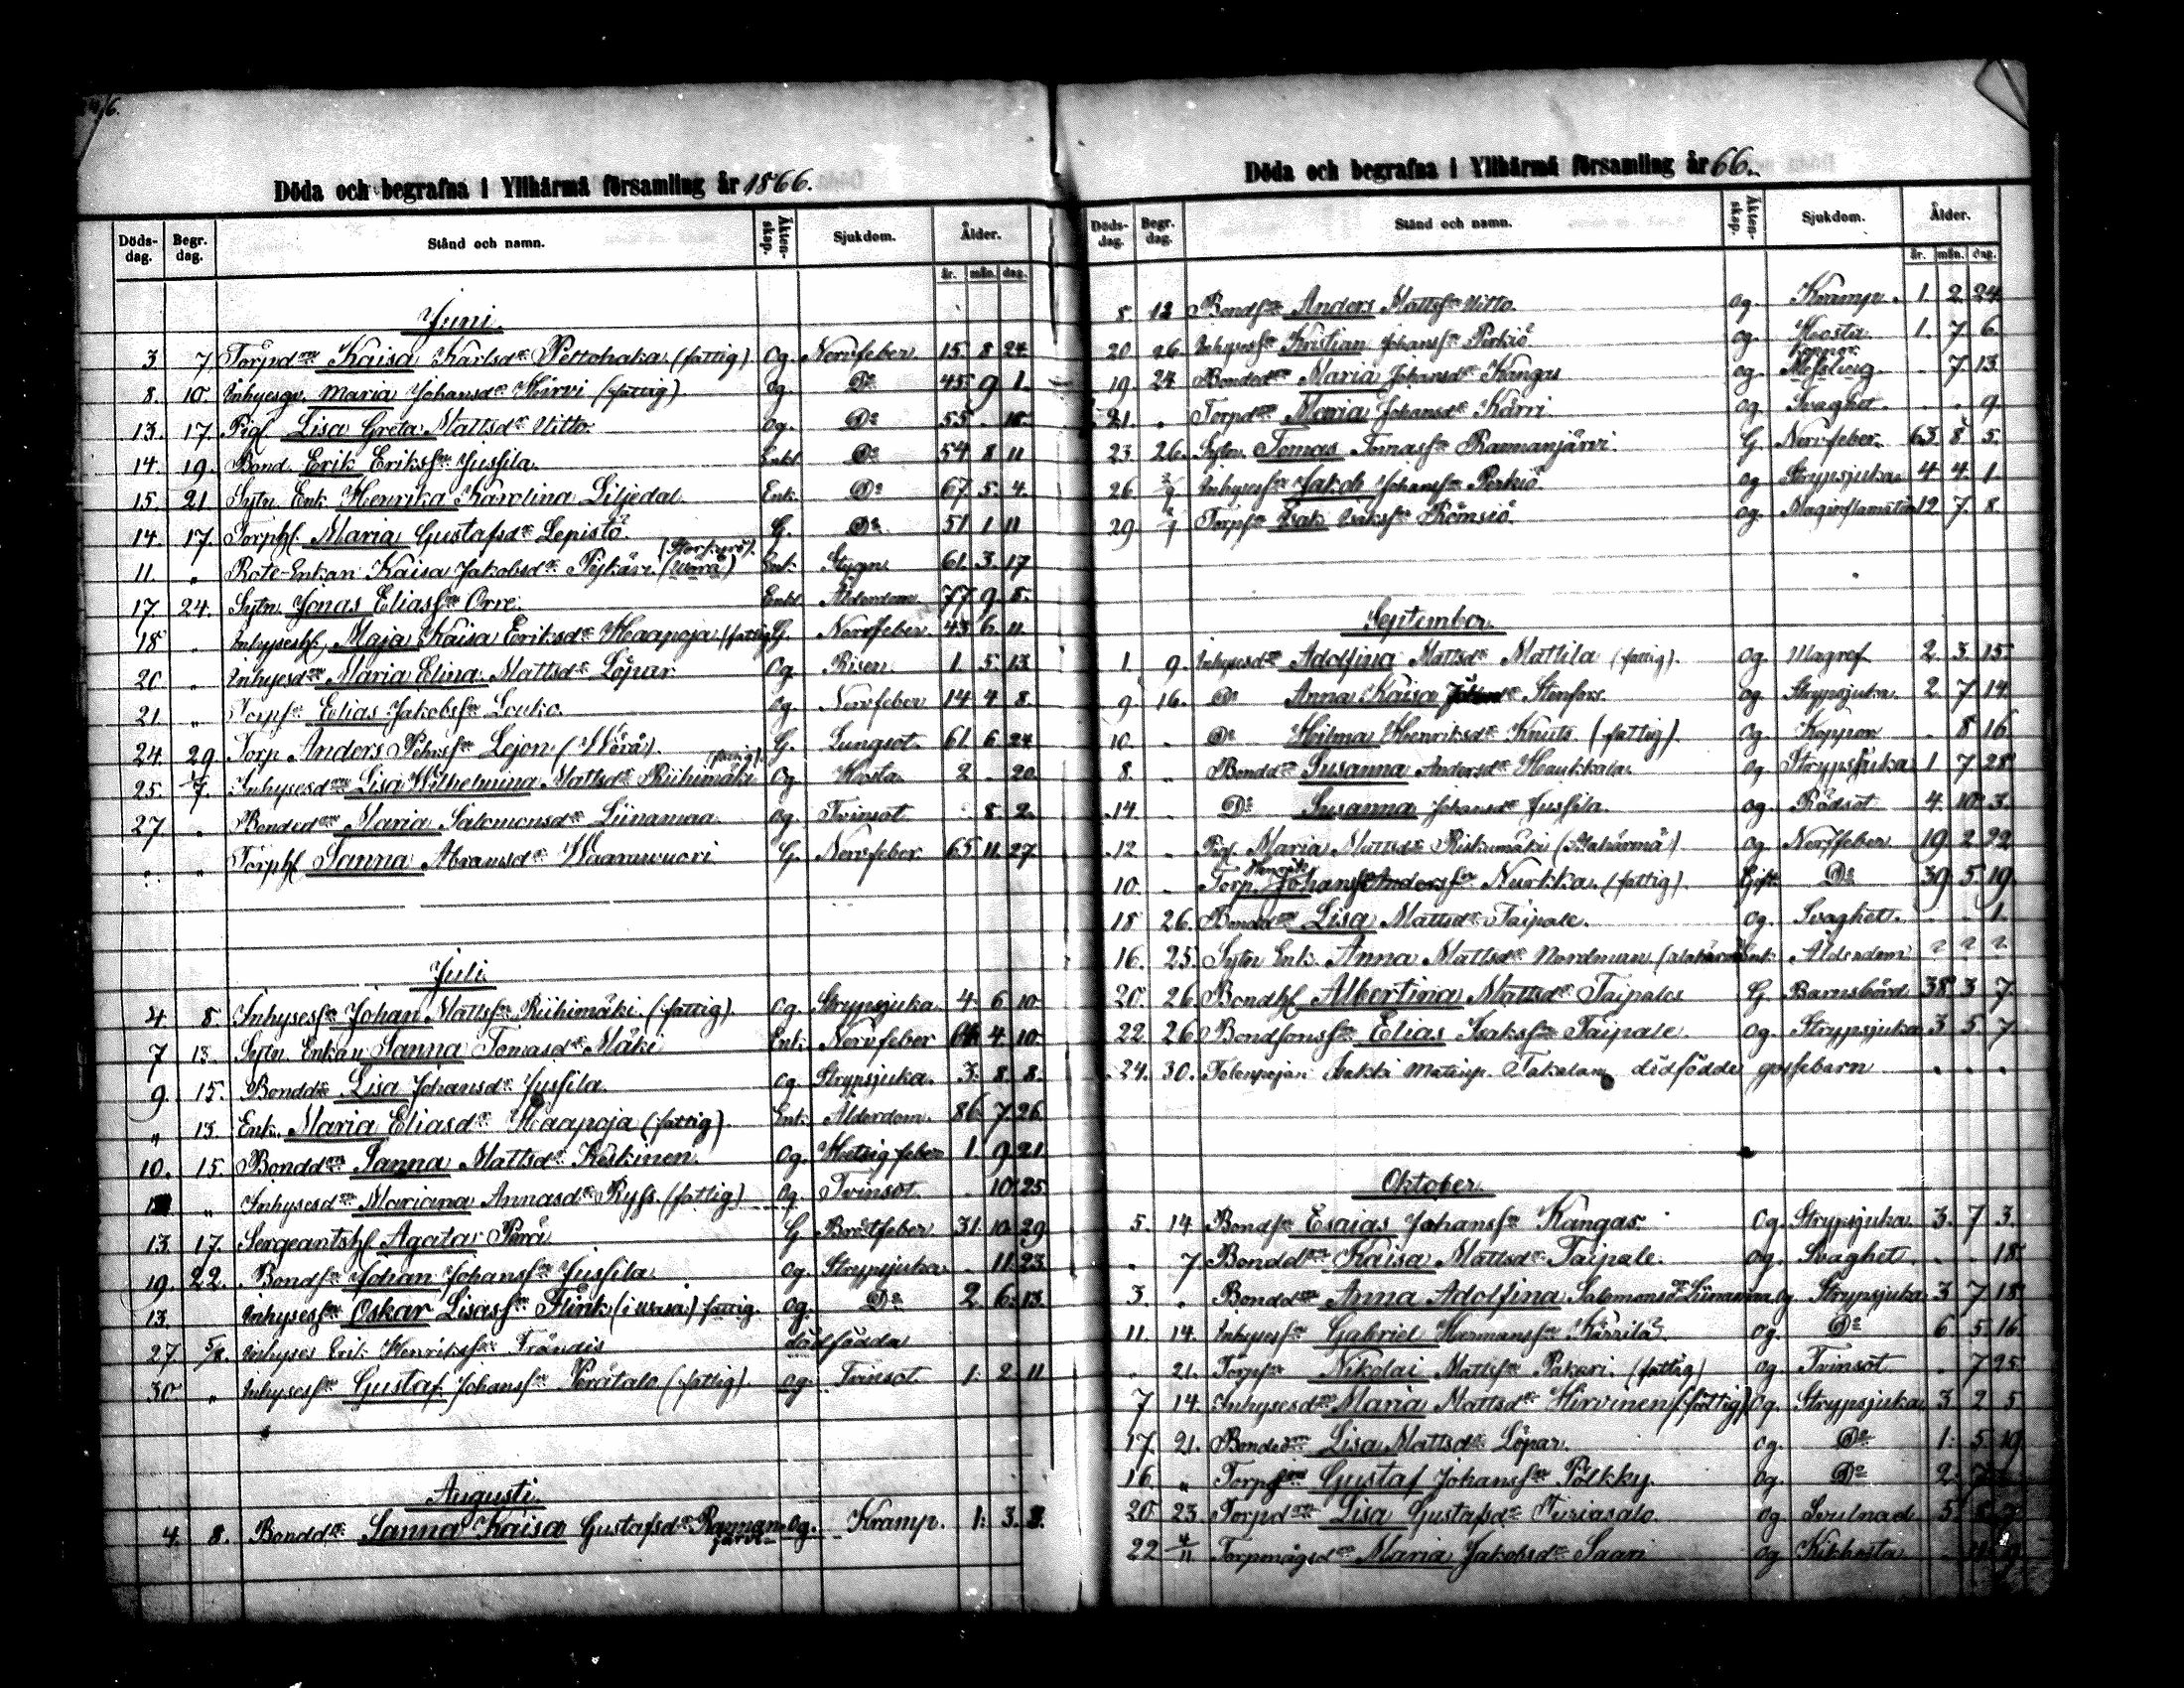 Döda och begrafna i Ylihärmä församling år 1866.
Döds-dag. Begr. dag. Stånd och namn. Äkten-skap. Sjukdom. Ålder.
år. mån. dag.
Juni.
3. 7 Torpdr Kaisa Karlsdr Pettohaka (fattig) Og. Nervfeber 15 8 24
8. 10 Inhysesgn Maria Johansdr Hirvi (fattig) og. Do 45 9 1.
13. 17. Pig. Lisa Greta Mattsdr Uitto. og. Do 55 . 18.
14. 19. Bond. Erik Eriksson Jussila Enkl. Do 54 8 11
15. 21 Sytn. Enk. Henrika Karolina Liljedal Enk. Do 67. 5. 4.
14. 17. Torphf. Maria Gustafsdr Lepistö G. Do 51 1 11
11. " Rote-Enkan Kaisa Jakobsdr (Storkyrö). (Wörå) Enk. Stygn 61. 3. 17
17. 24. Sytn. Jonas Eliasson Orre. Enkl. Ålderdom 77. 9 8.
18 . Inhyseshf. Maja Kaisa Eriksdr Haapoja (fattig) G. Nervfeber. 43 6. 11.
20. " Inhysesdr Maria Elina Mattsdr Löpar Og. Risen 1. 5. 13
21. " Torpsn Elias Jakobsson Louko. og. Nervfeber 14 4 8.
24. 29 Torp. Anders Pehrsson Lejon (Wörå). G. Lungsot. 61. 6. 24
25. /7. Inhysesdr Lisa Wilhelmina Mattsdr Riihimäki (fattig). Og. Hosta 2 . 20.
27 . Bondedr Maria Salomonsdr Liinamaa og. Tvinsot . 8. 2.
" " Torphf Sanna Abramsdr Waarawuori G. Nervfeber 65. 11. 27
Juli.
4. 8. Inhysesson Johan Mattsson Riihimäki (fattig). Og. Strypsjuka 4. 6 10.
7 13. Sytn. Enkan Sanna Tomasdr Mäki Enk. Nervfeber 4. 10.
9. 15. Bonddr Lisa Johansdr Jussila. Og. Strypsjuka. 3. 8. 8.
" 13. Enk. Maria Eliasdr Haapoja (fattig) Enk. Ålderdom. 86. 7. 26.
10. 15. Bonddr Sanna Mattsdr Keskinen. Og. Hetsig feber 1. 9 21
" Inhysesdr Mariana Annasdr Ryss (fattig) Og. Tvinsot. . 10. 25.
13. 17. Sergeantshf Agata Perä G Brötfeber 31. 10. 29
19. 22. Bondsn Johan Johansson Jussila Og. Strypsjuka . 11. 23
13. Inhysessn Oskar Lisasson Flink (i Wasa) fattig. og. Do 2. 6. 13.
27. 5/8. Inhyses Erik Henriksson Frändis dödfödda
30. " Inhysessn Gustaf Johansson Perätalo (fattig). Og. Tvinsot 1. 2 11
Augusti.
4. 8. Bonddr Sanna Kaisa Gustafsdr Ramman-järvi Og. Kramp. 1. 3.
Döda och begrafna i Ylihärmä församling år 66.
Döds-dag. Begr. dag. Stånd och namn. Äkten-skap. Sjukdom. Ålder.
år. mån. dag.
8. 12 Bondsn Anders Mattsson Uitto. og. Kramp. 1. 2. 24.
20 26. Inhysessn Kristian Johansson Perkiö og. Hosta 1. 7 6.
19. 24 Bondedr Maria Johansdr Kangas og. Koppor Messling . 7. 13.
21. " Torpdr Maria Johansdr Kärri og. Svaghet. . . 9
23. 26. Sytn. Tomas Tomasson Rammanjärvi. G. Nervfeber. 63. 8. 5.
26. 2/9 Inhysessn Jakob Johansson Perkiö. og Strypsjuka 4. 4. 1.
29. Torpsn Isak Isaksson Römsiö. og. Maginflamation 12. 7. 8.
September.
1. 9. Inhysesdr Adolfina Mattsdr Mattila (fattig). Og. Magref. 2. 3. 15.
9. 16. Do Anna Kaisa Stenfors. og. Strypsjuka. 2. 7 14.
10. " Do Hilma Henriksdr Knuts (fattig). Og. Koppon . 8 16
8. " Bonddr Susanna Andersdr Haukkala. og. Strypsjuka 1 7 28.
14. " Do Susanna Johansdr Jussila. og. Rödsot 4. 10. 3.
12. " Pig. Maria Mattsdr Riskumäki (Alahärmä). og. Nervfeber 19. 2. 22
10. " Torp. Johan Andersson Nurkka. (fattig). Gift Do 39. 5. 19.
18 26. Bonddr Lisa Mattsdr Taipale. Og. Svaghet. . . 1.
16. 25. Sytn Enk. Anna Mattsdr Nordman (Alahärmä) Enk. Ålderdom ? ? ?
20. 26. Bondhf Albertina Mattsdr Taipales G. Barnsbörd 38. 3 7.
22. 26 Bondsonssn Elias Isaksson Taipale. Og. Strypsjuka 3. 5. 7
24. 30. Jaakki Takalan dödfödde gossebarn . . .
Oktober.
5. 14 Bondsn Esaias Johansson Kangas. Og. Strypsjuka. 3. 7 3.
" 7 Bonddr Kaisa Mattsdr Taipale. Og. Svaghet. . . 18.
3. " Bonddr Anna Adolfina Salomonsdr Liinamaa. og Strypsjuka 3 7 18
11. 14. Inhysessn Gabriel Hermansson Kärrilä. Og. Do 6 5 16.
" 21. Torpsn Nikolai Mattsson Pakari. (fattig) og Tvinsot. . 7 25.
7 14. Inhysesdr Maria Mattsdr Hirvinen (fattig) Og. Strypsjuka 3 2 5
17. 21. Bondedr Lisa Mattsdr Löpar. Og. Do 1. 5. 19.
16. " Torp Gustaf Johansson Pölkky. Og. Do 2. 7
20. 23. Torpdr Lisa Gustafsdr Turiasalo. Og Svulnad 5
22 4/11 Torpmågsdr Maria Jakobsdr Saari og Kikhosta